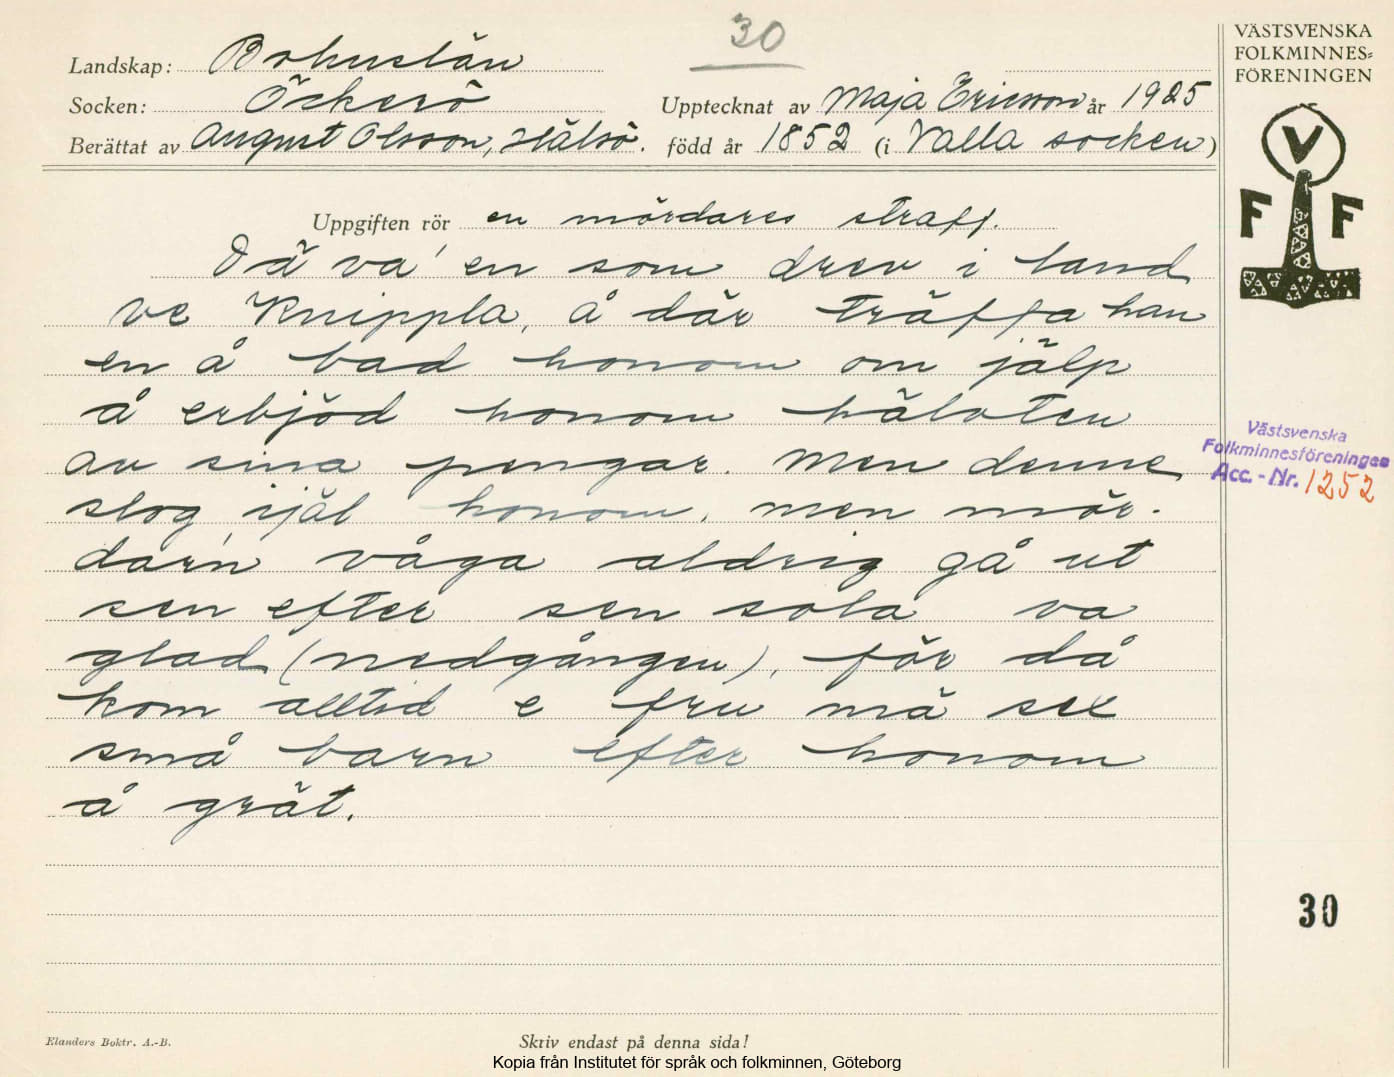 30
Landskap: Bohuslän
Socken: Öckerö
Upptecknat av Maja Ericsson år 1925
Berättat av August Olsson, Hälsö. född år 1852 (i Valla socken)
VÄSTSVENSKA
FOLKMINNES=
FÖRENINGEN
V
F F
Uppgiften rör en mördares straff.
Dä va' en som drev i land
ve Knippla, å där träffa han
en å bad honom om jälp
å erbjöd honom hälvten
av sina pengar. Men denne
slog ijäl honom, men mör-
darn våga aldrig gå ut
sen efter sen sola va
glad (nedgången), för då
kom alltid e fru mä sex
små barn efter honom
å grät.
Västsvenska
Folkminnesföreningen
Acc. - Nr. 1252
30
Elanders Boktr. A.-B.
Skriv endast på denna sida!
Kopia från Institutet för språk och folkminnen, Göteborg